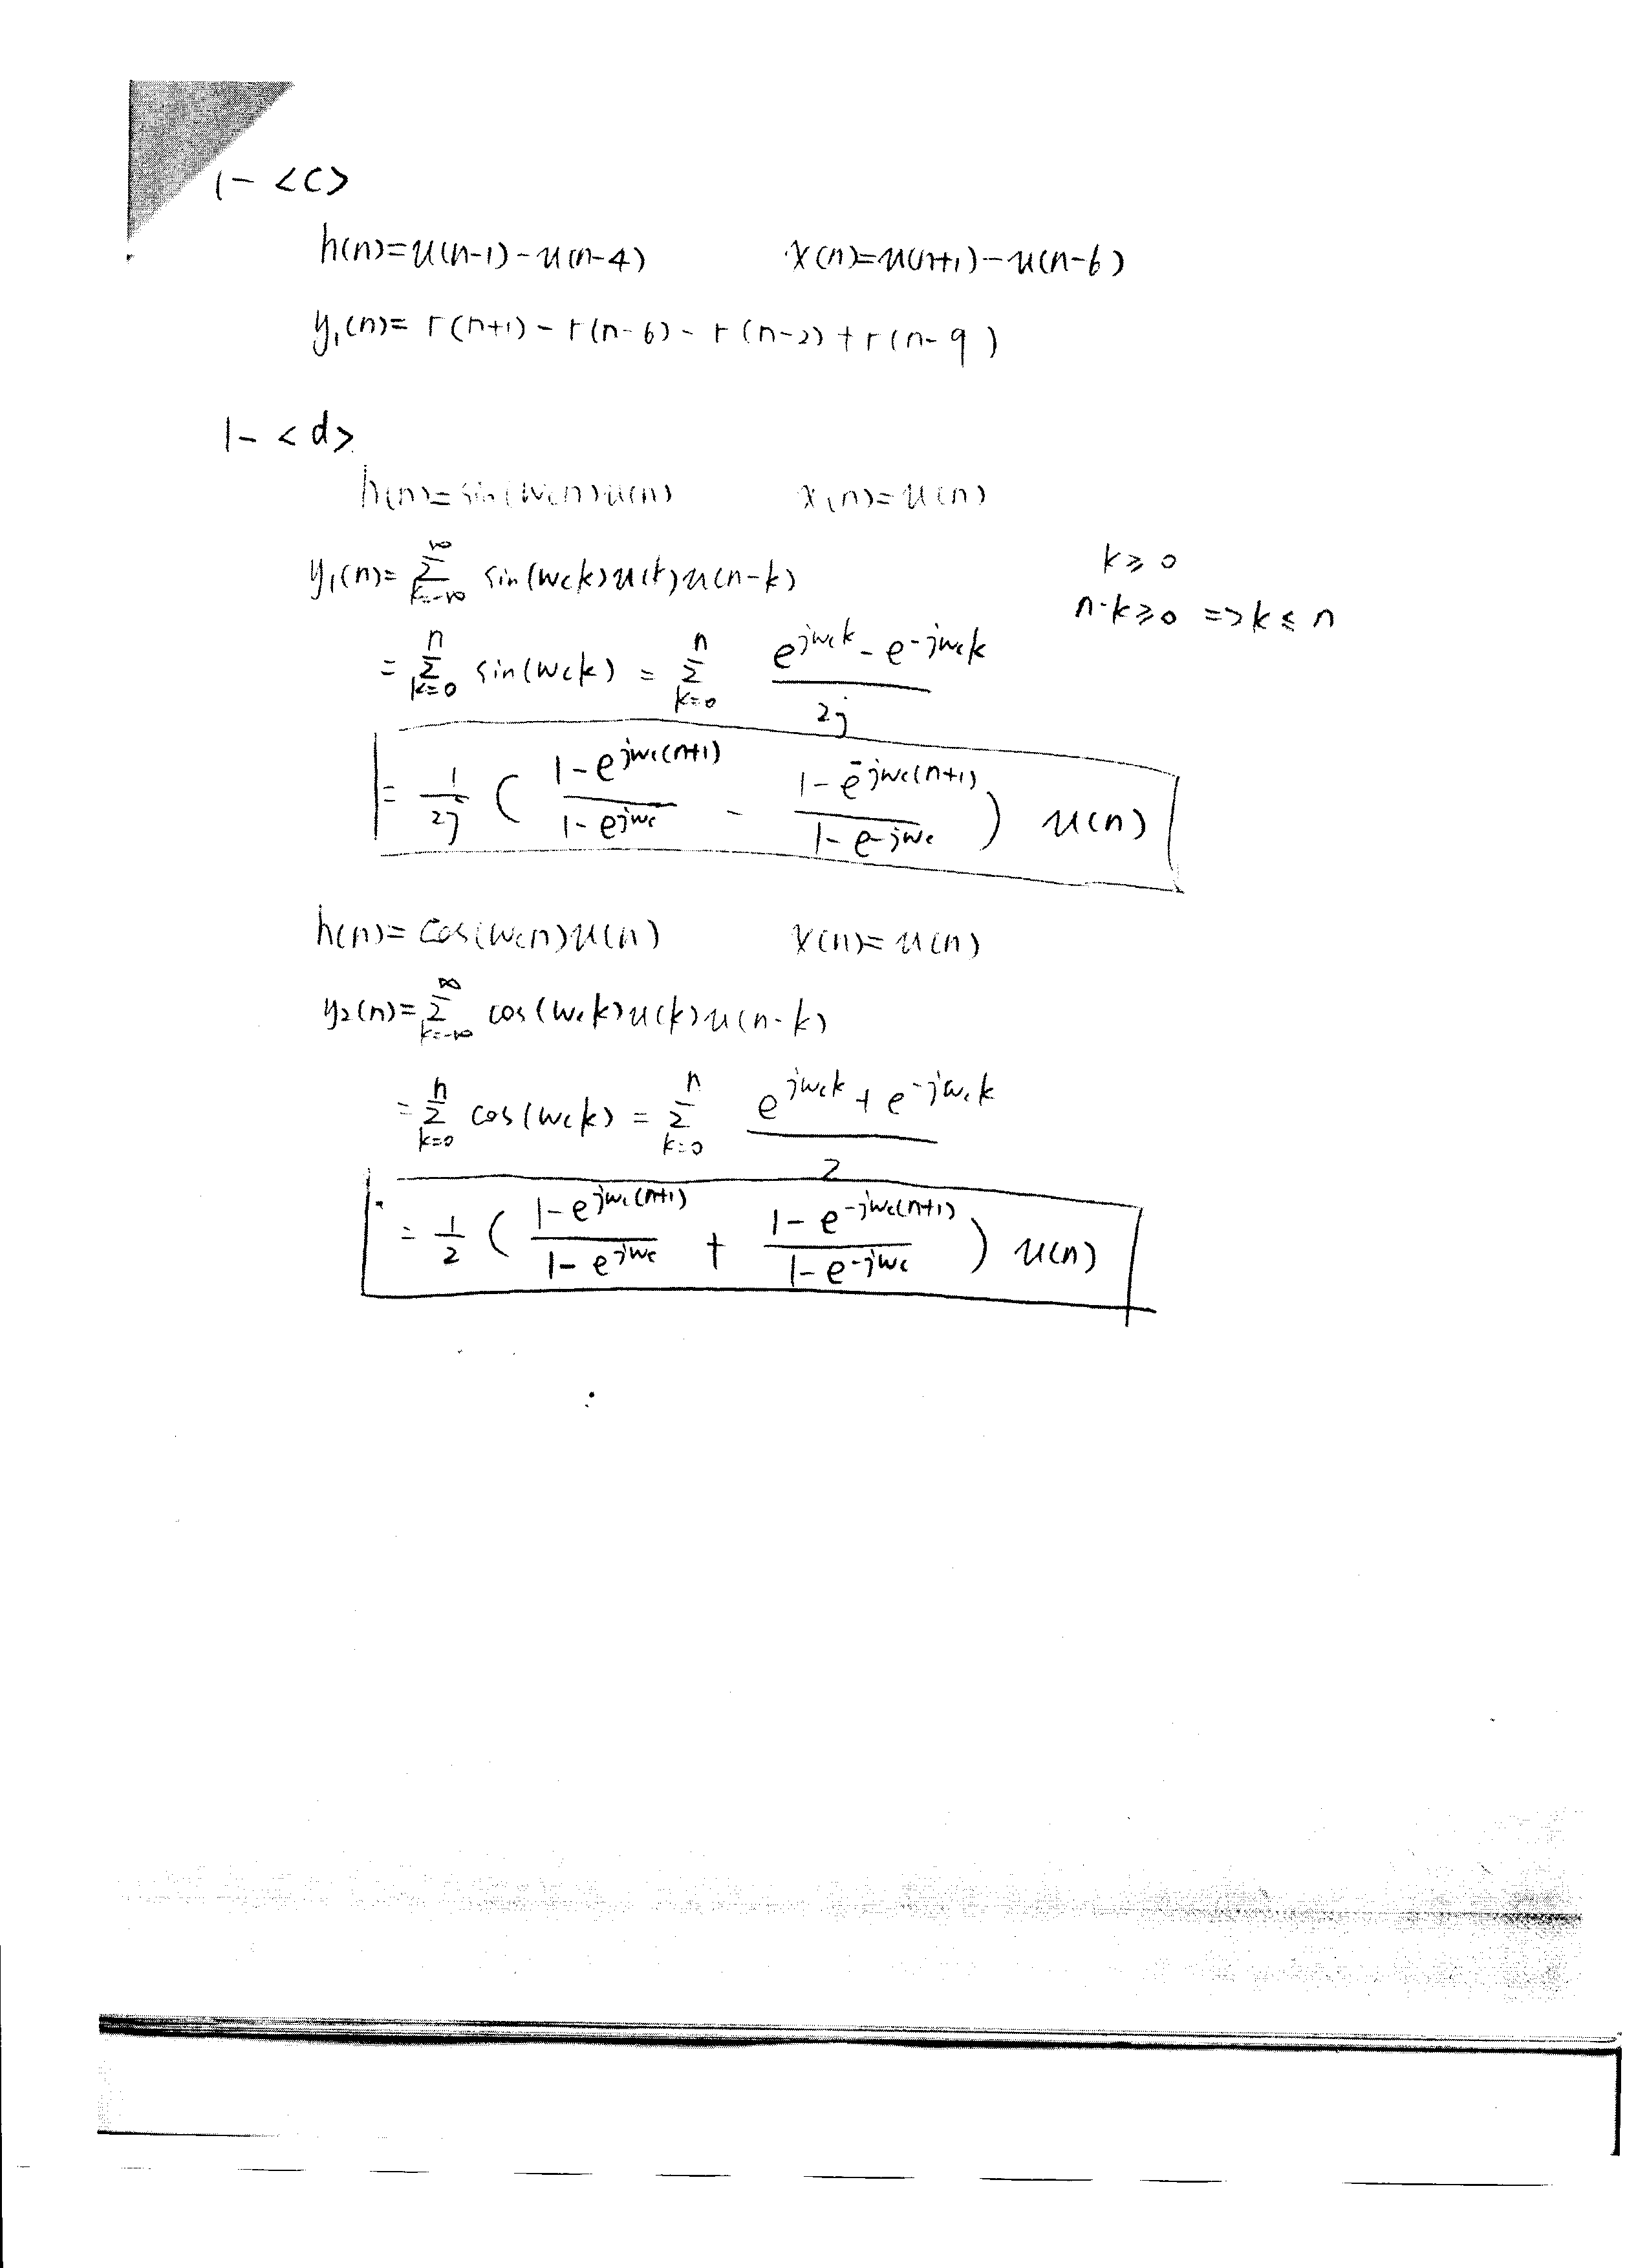 1- <c>
h(n)=u(n-1)-u(n-4) x(n)=u(n+1)-u(n-6)
y₁(n)= r(n+1) - r(n-6) - r(n-2) + r(n-9)
1- <d>
h(n)=sin(wcn)u(n) x(n)=u(n)
y₁(n)= Σ_{k=-∞}^{∞} sin(wck)u(k)u(n-k) k≥0
n-k≥0 => k≤n
= Σ_{k=0}^{n} sin(wck) = Σ_{k=0}^{n} (e^{jwck} - e^{-jwck})/2j
= 1/2j ( (1-e^{jwc(n+1)})/(1-e^{jwc}) - (1-e^{-jwc(n+1)})/(1-e^{-jwc}) ) u(n)
h(n)= cos(wcn)u(n) x(n)= u(n)
y₂(n)= Σ_{k=-∞}^{∞} cos(wck)u(k)u(n-k)
= Σ_{k=0}^{n} cos(wck) = Σ_{k=0}^{n} (e^{jwck} + e^{-jwck})/2
= 1/2 ( (1-e^{jwc(n+1)})/(1-e^{jwc}) + (1-e^{-jwc(n+1)})/(1-e^{-jwc}) ) u(n)